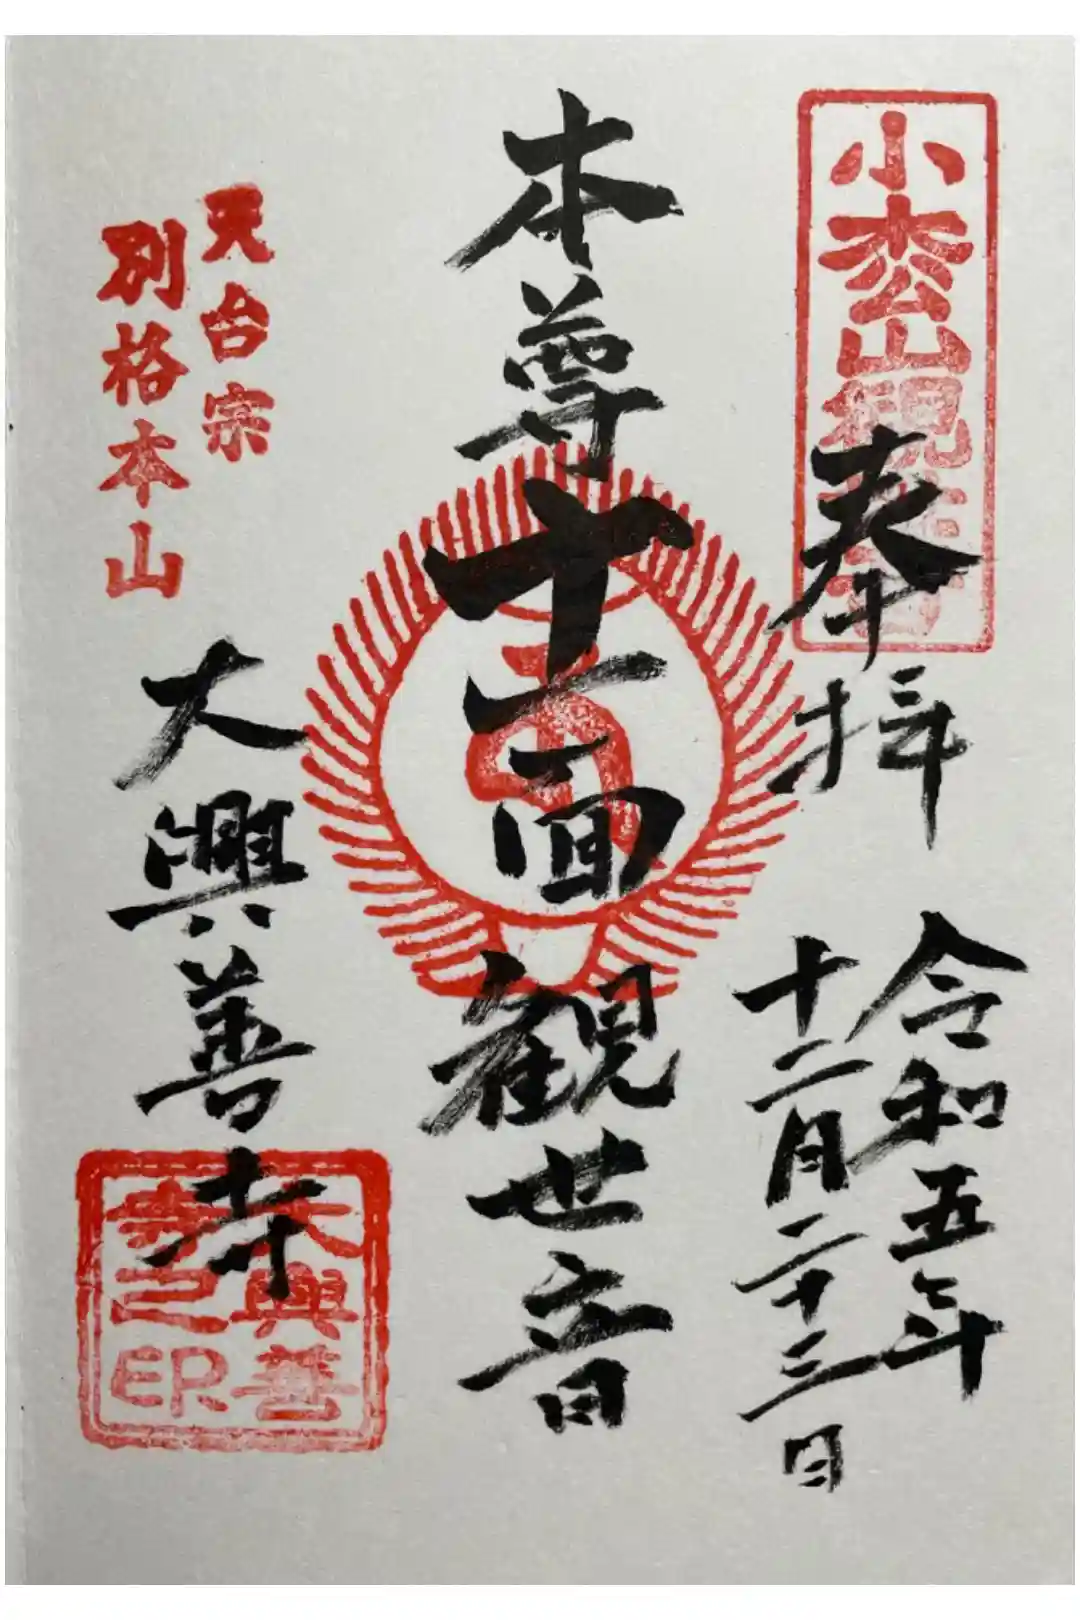 小松山観世音
奉拝
令和五年
十二月二十三日
本尊十一面観世音
天台宗
別格本山
大興善寺
大興善
寺之印